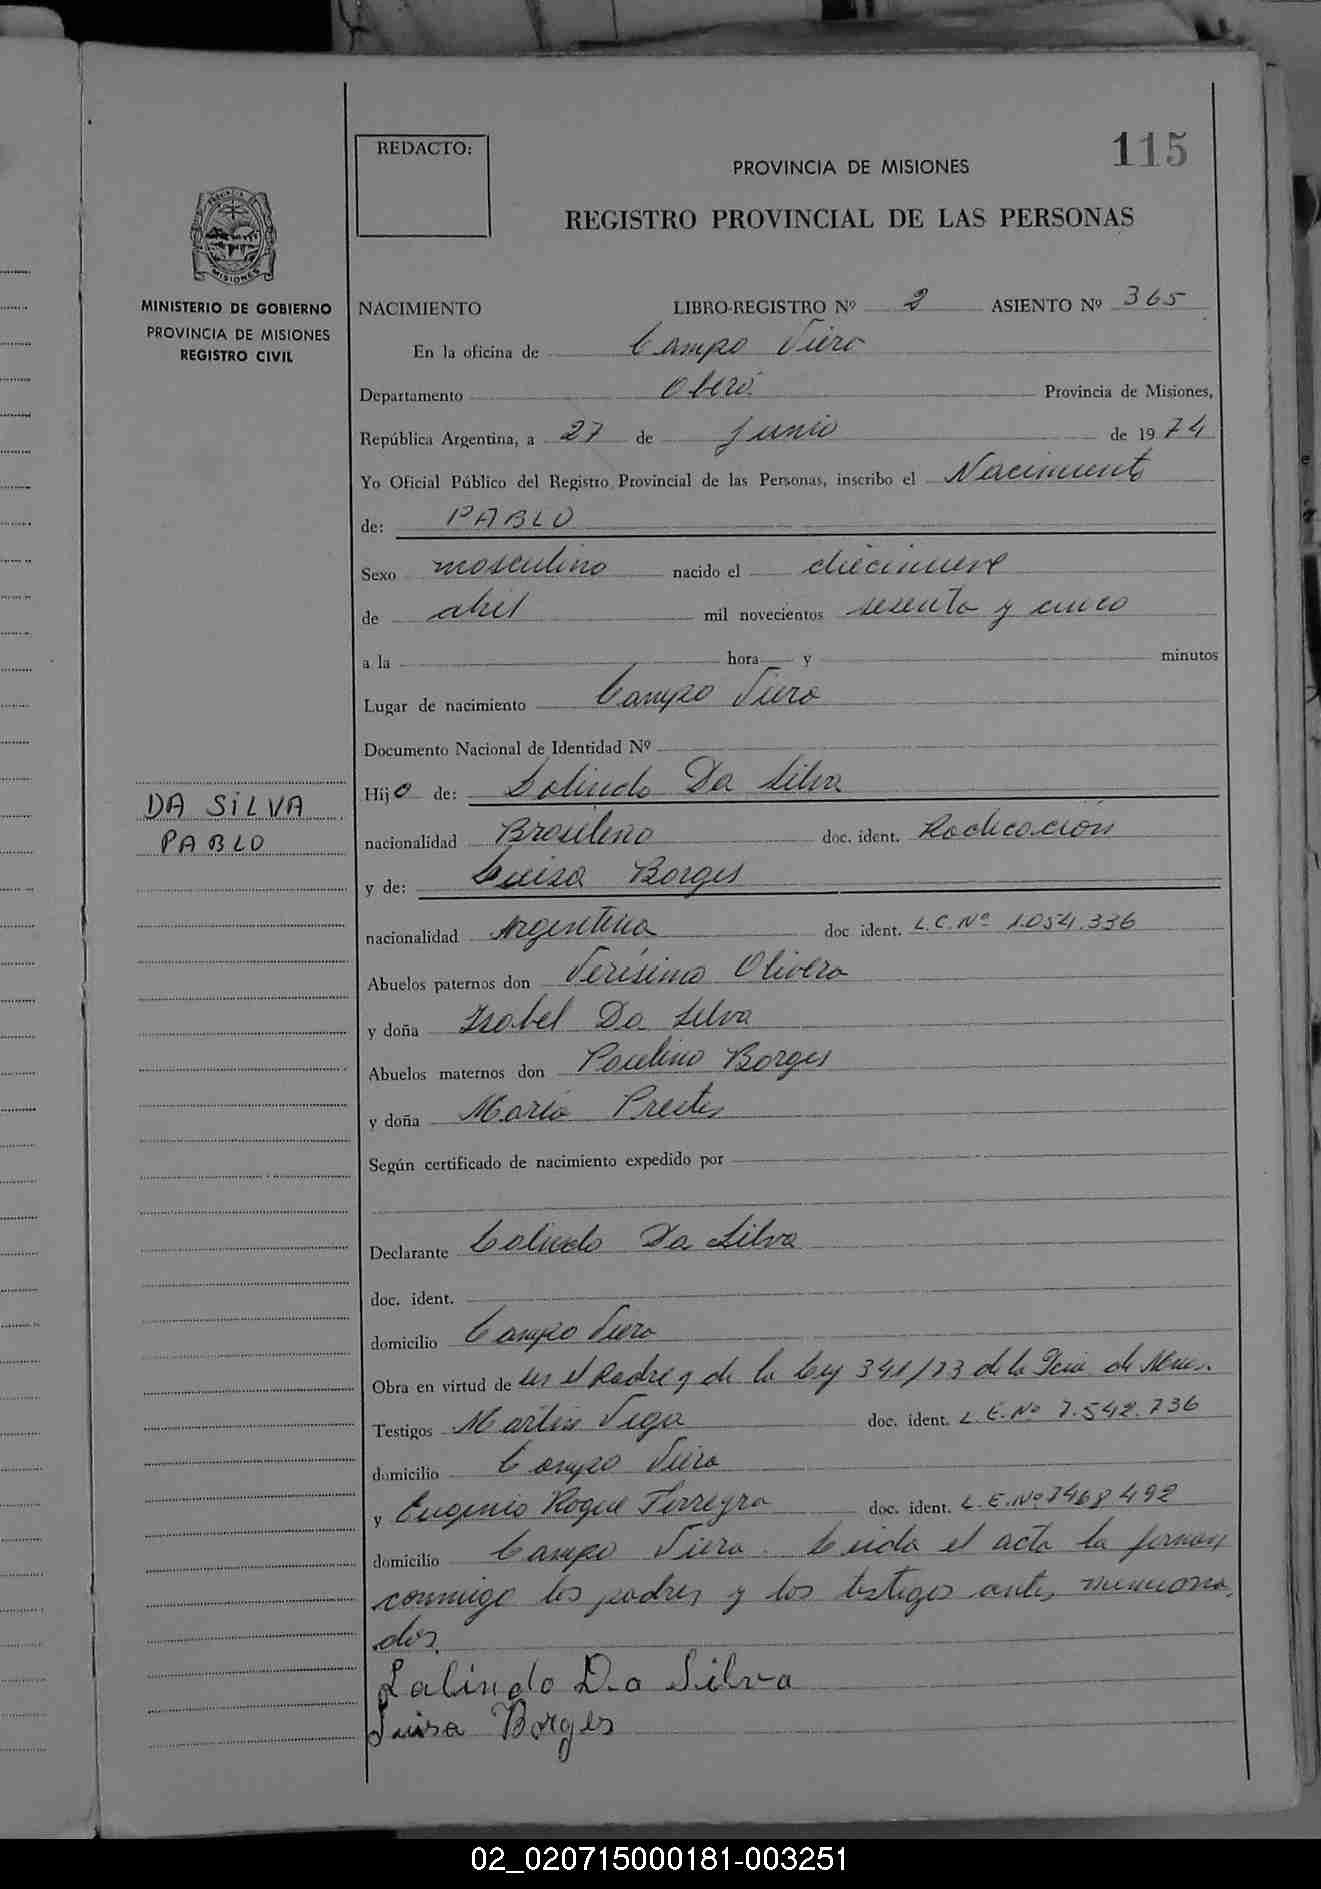 115
REDACTO:
PROVINCIA DE MISIONES
REGISTRO PROVINCIAL DE LAS PERSONAS
PROVINCIA
MISIONES
MINISTERIO DE GOBIERNO
PROVINCIA DE MISIONES
REGISTRO CIVIL
NACIMIENTO LIBRO-REGISTRO Nº 2 ASIENTO Nº 365
En la oficina de Campo Viera
Departamento Oberá Provincia de Misiones,
República Argentina, a 27 de Junio de 1974
Yo Oficial Público del Registro Provincial de las Personas, inscribo el Nacimiento
de: PABLO
Sexo masculino nacido el diecinueve
de abril mil novecientos sesenta y cinco
a la hora y minutos
Lugar de nacimiento Campo Viera
Documento Nacional de Identidad Nº
DA SILVA
PABLO
Hijo de: Lalindo Da Silva
nacionalidad Brasileño doc. ident. Radicación
y de: Luisa Borges
nacionalidad Argentina doc ident. L.C.Nº 1.054.336
Abuelos paternos don Verísimo Olivera
y doña Isabel Da Silva
Abuelos maternos don Paulino Borges
y doña María Prestes
Según certificado de nacimiento expedido por
Declarante Lalindo Da Silva
doc. ident.
domicilio Campo Viera
Obra en virtud de ser el Padre y de la Ley 341/73 de la Pcia. de Mnes.
Testigos Martin Vega doc. ident. L.E.Nº 7.542.736
domicilio Campo Viera
y Eugenio Roque Ferreyra doc. ident. L.E.Nº 7468492
domicilio Campo Viera. Leida el acta la firman
conmigo los padres y los testigos antes menciona
dos.
Lalindo Da Silva
Luisa Borges
02_020715000181-003251